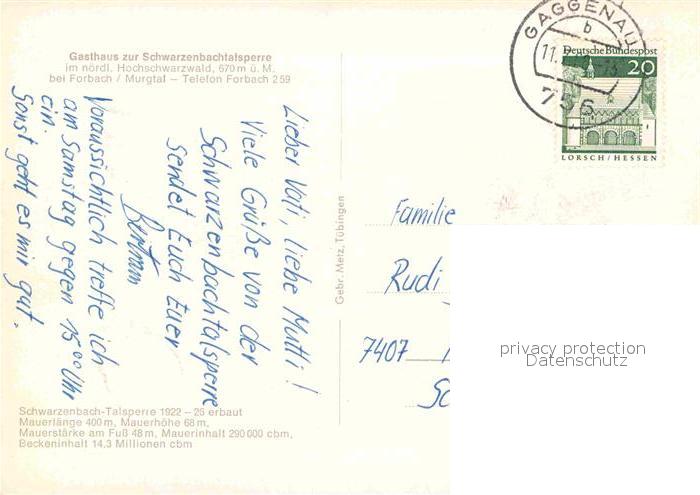 Gasthaus zur Schwarzenbachtalsperre
im nördl. Hochschwarzwald, 670 m ü. M.
bei Forbach / Murgtal – Telefon Forbach 259
Lieber Vati, liebe Mutti!
Viele Grüße von der
Schwarzenbachtalsperre
sendet Euch Euer
Bertram
Voraussichtlich treffe ich
am Samstag gegen 15⁰⁰ Uhr
ein.
Sonst geht es mir gut.
Schwarzenbach-Talsperre 1922 – 25 erbaut
Mauerlänge 400 m, Mauerhöhe 68 m,
Mauerstärke am Fuß 48 m, Mauerinhalt 290 000 cbm,
Beckeninhalt 14,3 Millionen cbm
Gebr. Metz, Tübingen
GAGGENAU
b
756
Deutsche Bundespost
20
LORSCH / HESSEN
Familie
Rudi
7407
privacy protection
Datenschutz